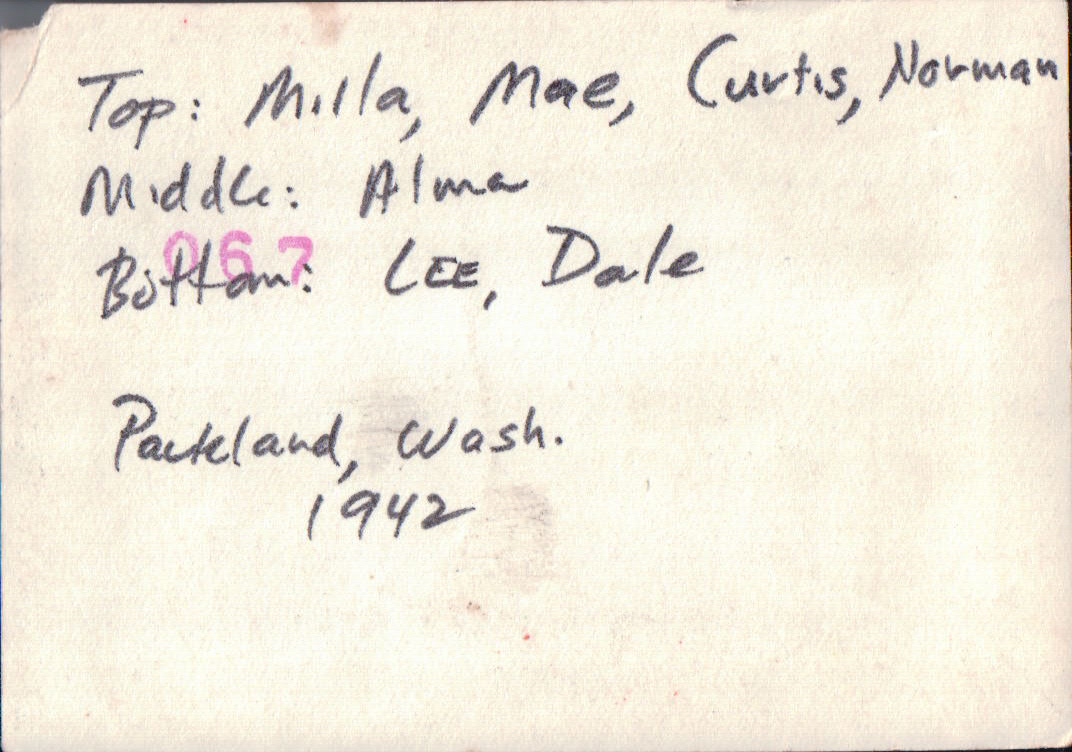 Top: Milla, Mae, Curtis, Norman
Middle: Alma
067
Bottom: LEE, Dale
Parkland, Wash.
1942